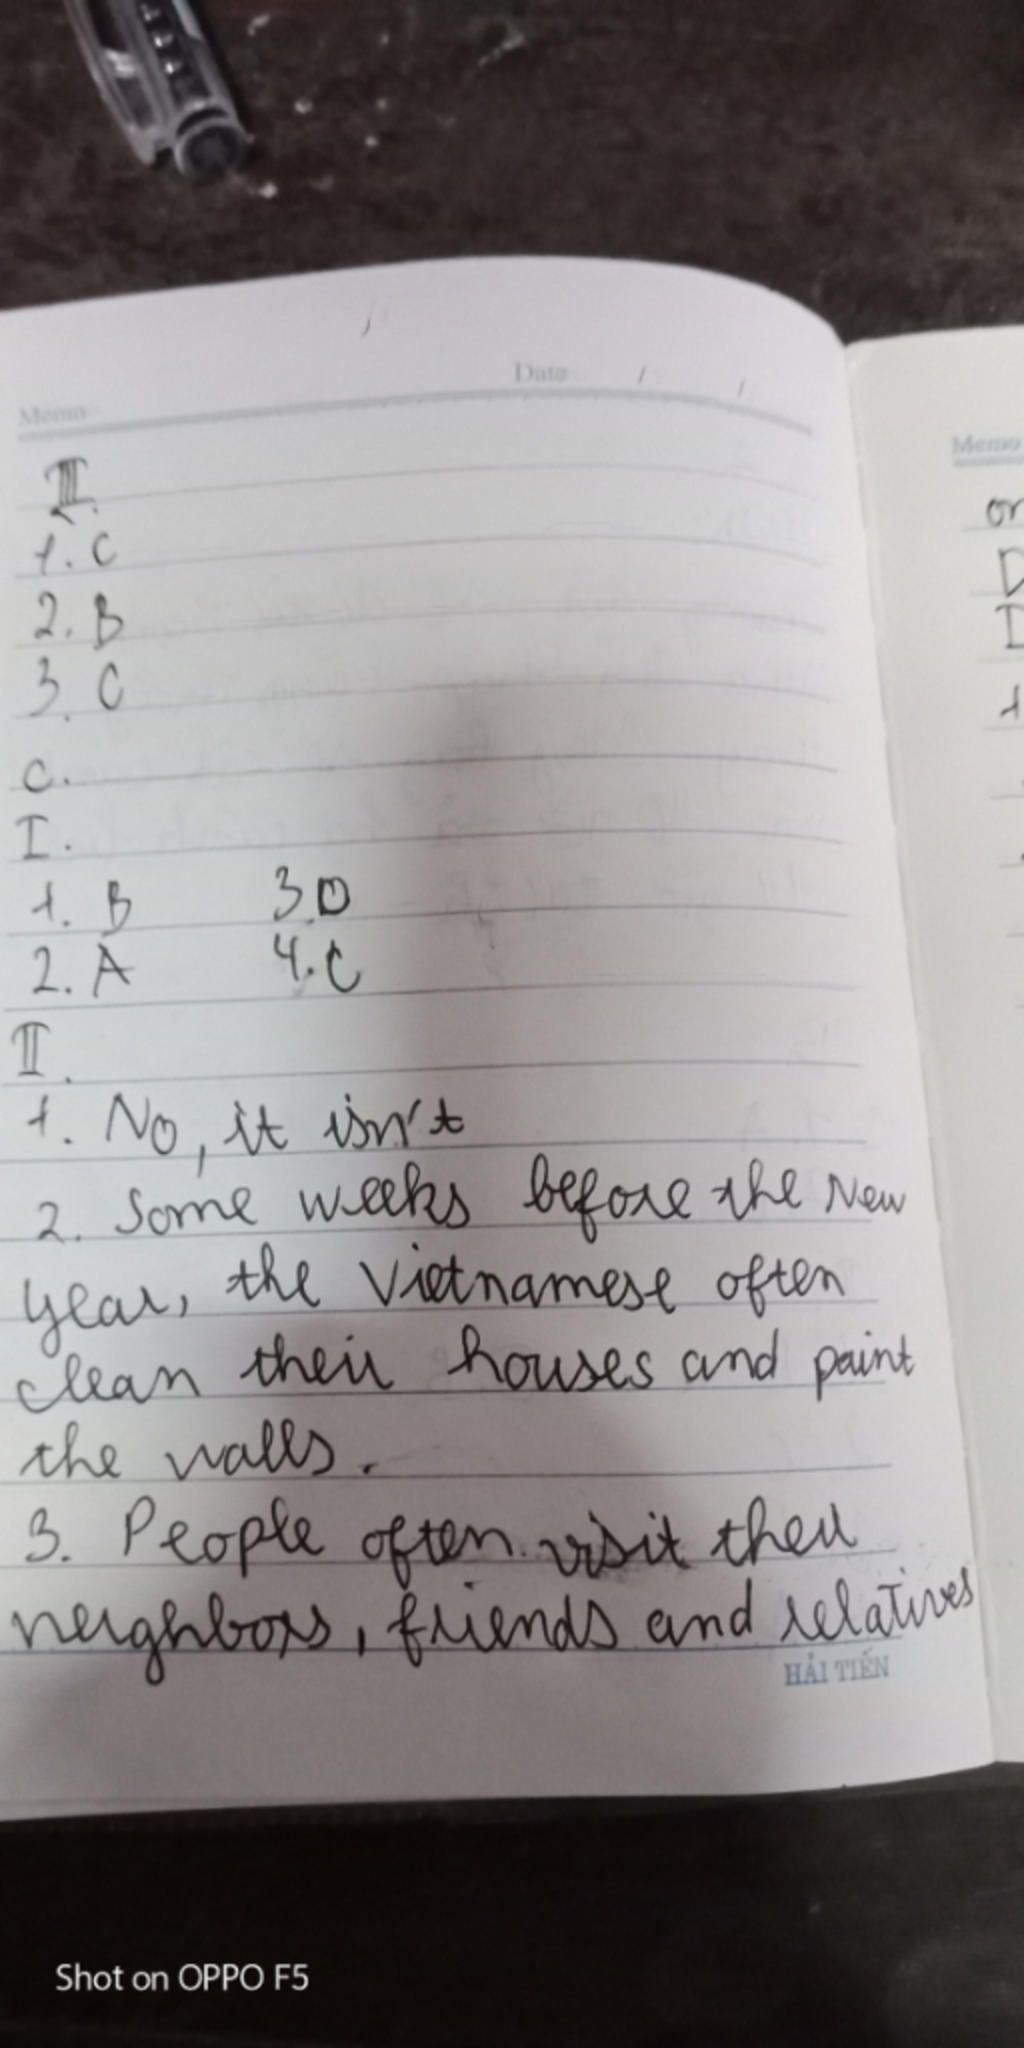 Memo
Date / /
III.
1. C
2. B
3. C
C.
I.
1. B 3. D
2. A 4. C
II.
1. No, it isn't
2. Some weeks before the New
year, the Vietnamese often
clean their houses and paint
the walls.
3. People often visit their
neighbors, friends and relatives
HẢI TIẾN
Memo
or
Shot on OPPO F5